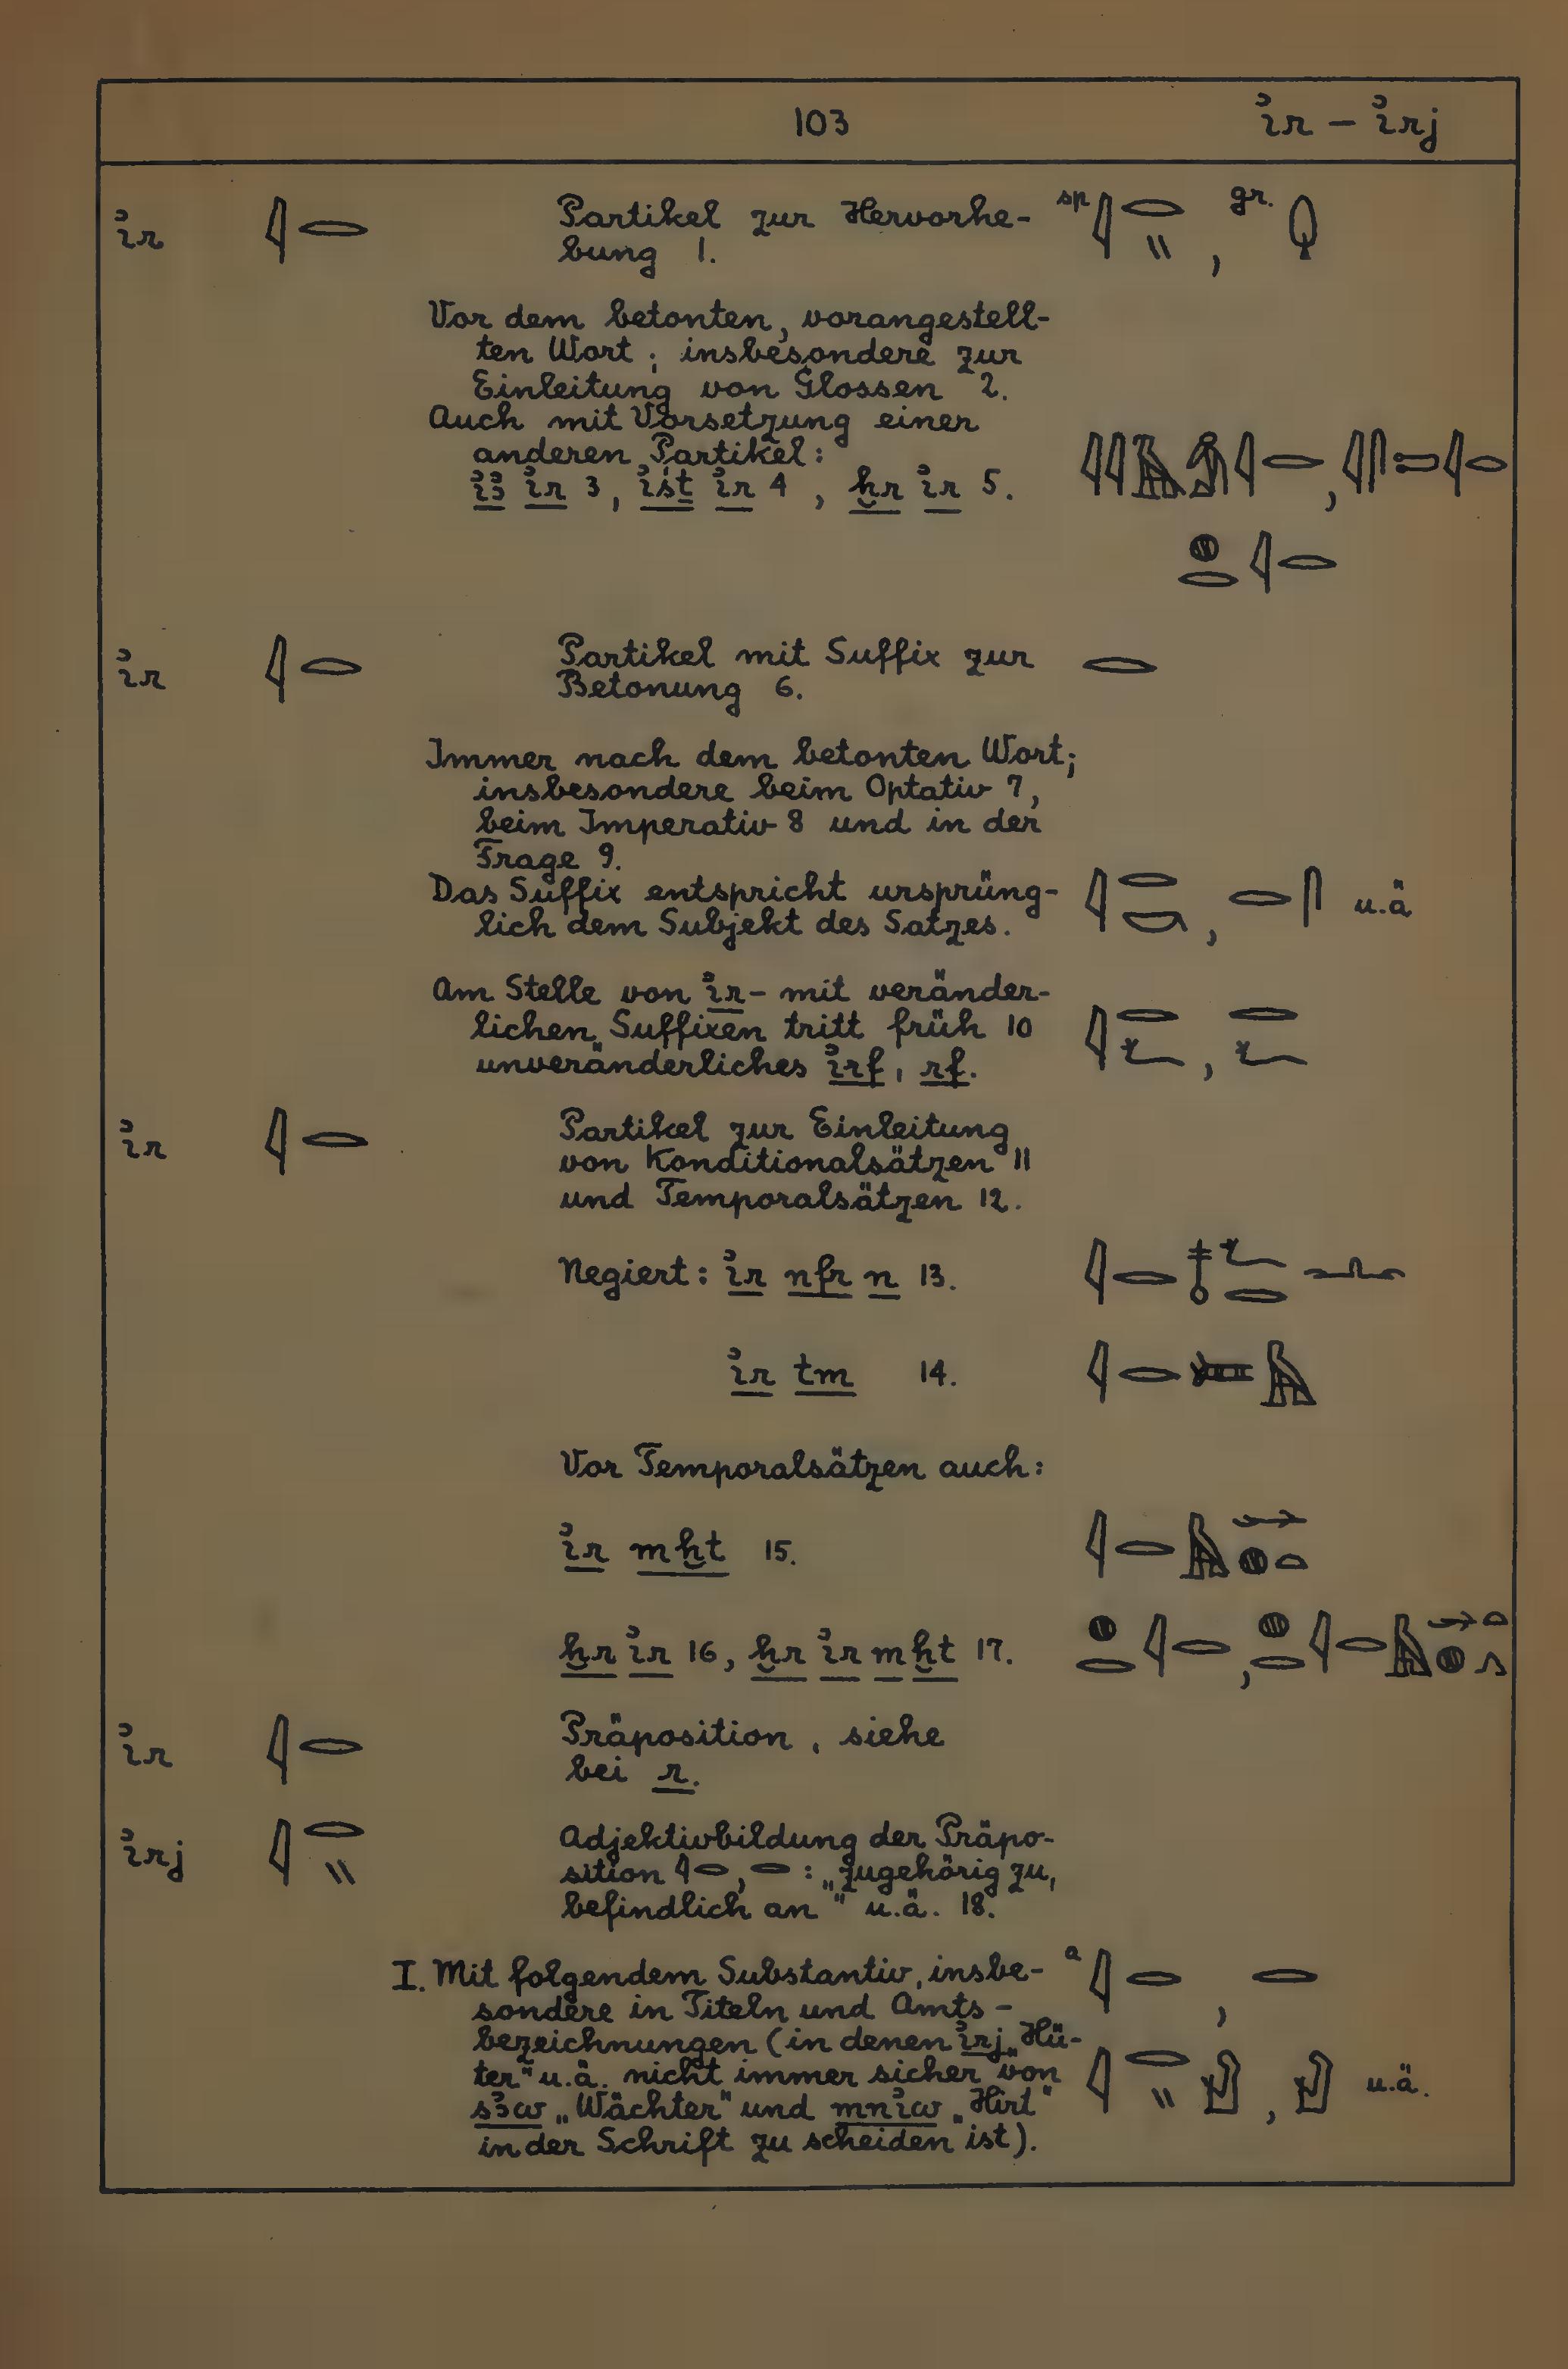 103 ı͗r – ı͗rj
ı͗r 𓇋𓂋 Partikel zur Hervorhe- sp 𓇋𓂋𓏭, gr. 𓆭
bung 1.
Vor dem betonten, vorangestell-
ten Wort; insbesondere zur
Einleitung von Glossen 2.
Auch mit Vorsetzung einer
anderen Partikel:
ı͗ꜣ ı͗r 3, ı͗śṯ ı͗r 4, ḫr ı͗r 5.
𓐍𓂋𓇋𓂋
ı͗r 𓇋𓂋 Partikel mit Suffix zur 𓂋
Betonung 6.
Immer nach dem betonten Wort;
insbesondere beim Optativ 7,
beim Imperativ 8 und in der
Frage 9.
Das Suffix entspricht ursprüng- 𓇋𓂋𓎡, 𓂋𓋴 u.ä
lich dem Subjekt des Satzes.
Am Stelle von ı͗r- mit veränder-
lichen Suffixen tritt früh 10 𓇋𓂋𓆑, 𓂋𓆑
unveränderliches ı͗rf, rf.
ı͗r 𓇋𓂋 Partikel zur Einleitung
von Konditionalsätzen 11
und Temporalsätzen 12.
Negiert: ı͗r nfr n 13. 𓇋𓂋𓄤𓆑𓂋𓂜
ı͗r tm 14. 𓇋𓂋𓍃𓅓
Vor Temporalsätzen auch:
ı͗r mḫt 15. 𓇋𓂋𓅓𓆱𓐍𓏏
ḫr ı͗r 16, ḫr ı͗r m ḫt 17. 𓐍𓂋𓇋𓂋, 𓐍𓂋𓇋𓂋𓅓𓆱𓏏𓐍𓂻
ı͗r 𓇋𓂋 Präposition, siehe
bei r.
ı͗rj 𓇋𓂋𓏭 Adjektivbildung der Präpo-
sition 𓇋𓂋, 𓂋 : „zugehörig zu,
befindlich an“ u.ä. 18.
I. Mit folgendem Substantiv, insbe- a 𓇋𓂋, 𓂋
sondere in Titeln und Amts-
bezeichnungen (in denen ı͗rj „Hü-
ter“ u.ä. nicht immer sicher von 𓇋𓂋𓏭, u.ä.
sꜣw „Wächter“ und mnı͗w „Hirt“
in der Schrift zu scheiden ist).